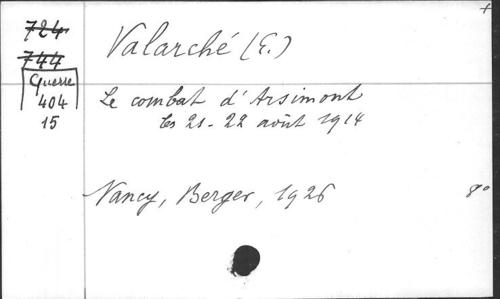 724
744
Guerre
404
15
Valarché (E.)
Le combat d'Arsimont
les 21-22 août 1914
Nancy, Berger, 1926
8°